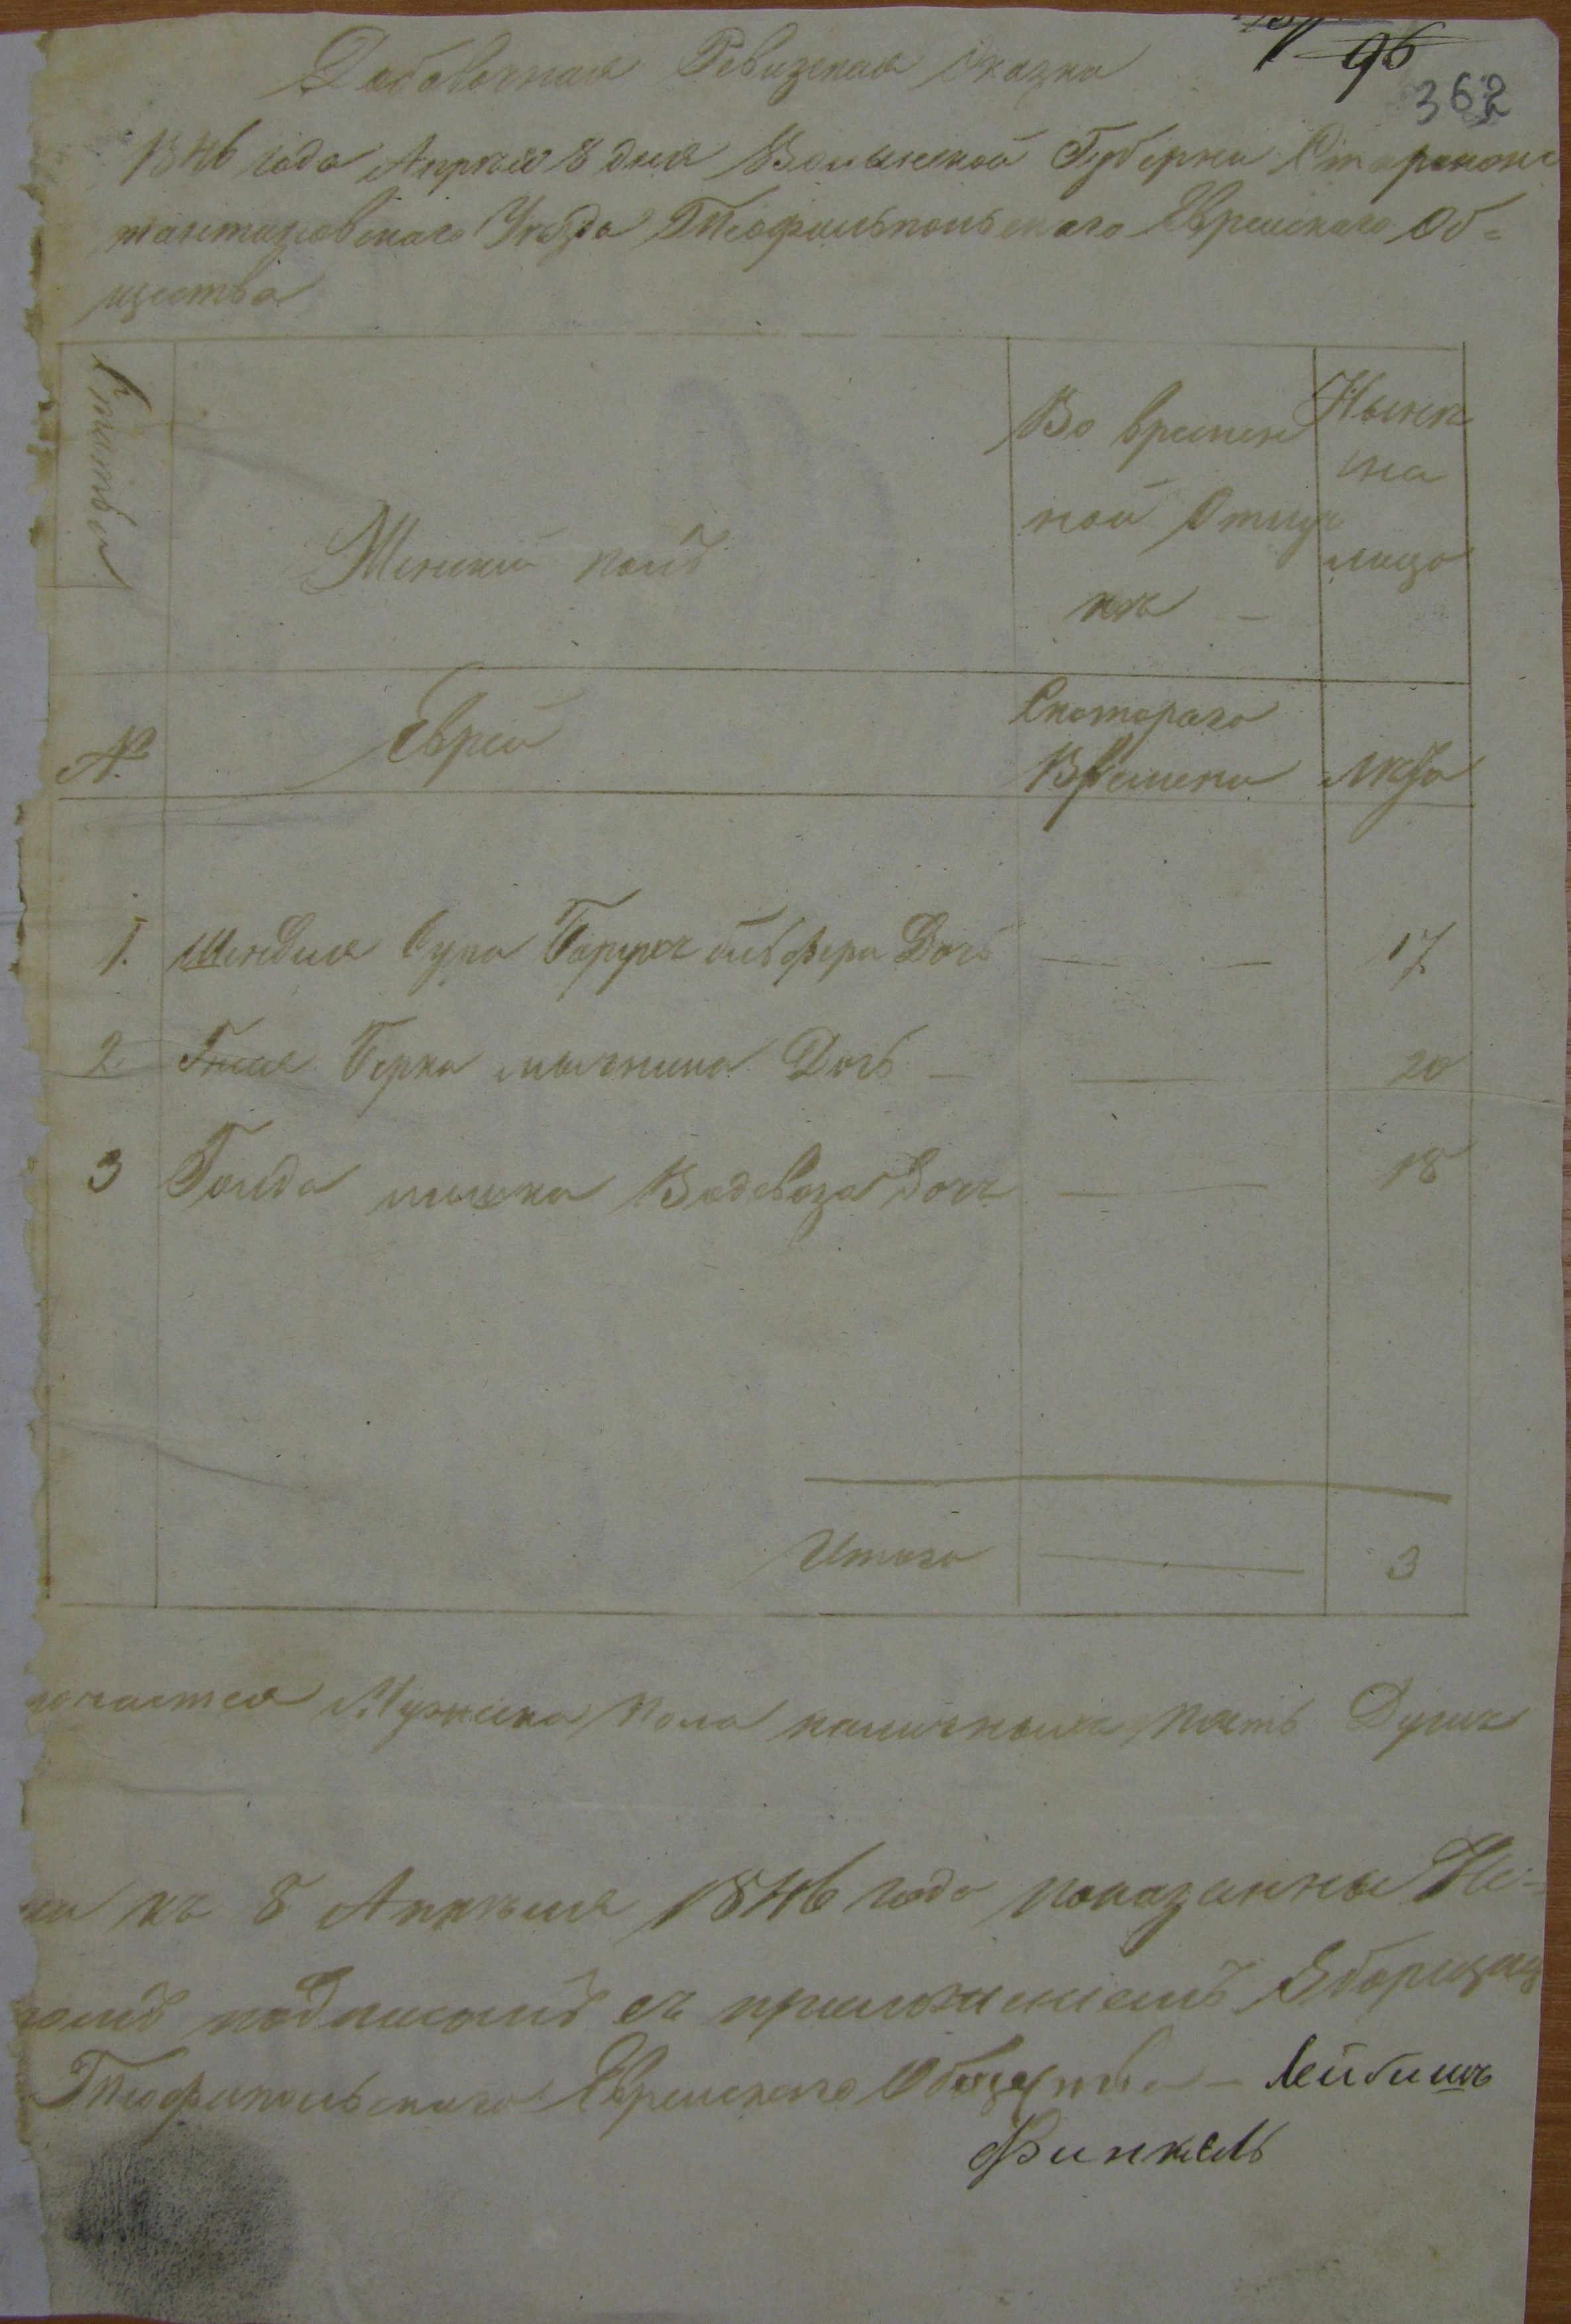 96
362
Добавочная Ревизская Сказка
1846 года Апреля 8 дня Волынской Губернии Старококс
тантиновскаго Уезда Теофильпольскаго Еврейскаго Об=
щества
Статьи
Женский полъ
Во времен
ной Отлуч
ке —
Ныне
на
лицо
№
Еврей
Скотораго
Времени
Лета
1. Шендля Сура Барух Дочь — — 17
2 Берка Дочь — — 20
3 Голда Водовоза Дочь — — 18
Итого — 3
Мужеска Пола наличныхъ пять Душъ
къ 8 Апреля 1846 года показанны Не=
подписомъ съ приложениемъ
Теофипольскаго Еврейскаго Общества — Лейбишъ
Финкель